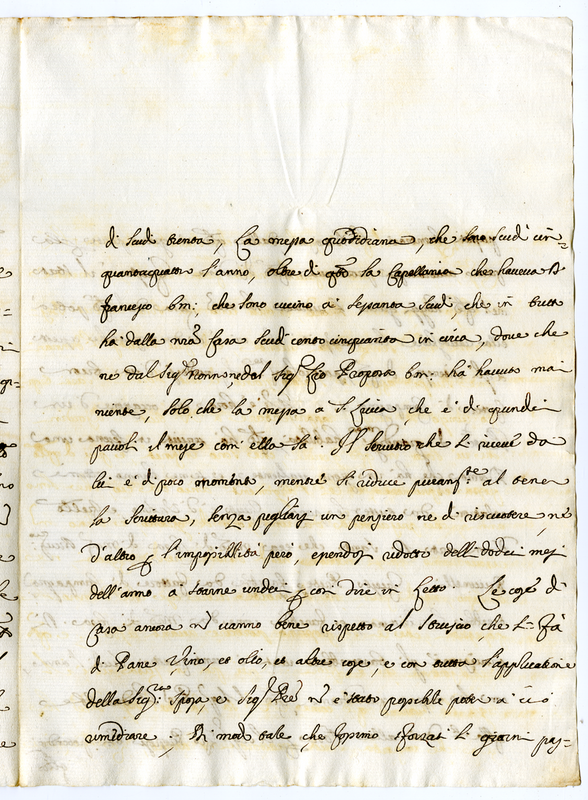 di Scudi trenta, La messa quotidiana, che sono scudi cin=
quantaquattro l'anno, oltre di qto la Capellania che haveva B
Francesco bm:, che sono vicino a sessanta scudi, che in tutto
ha dalla nra Casa scudi cento cinquanta in circa, dove che
ne dal Sigr Nonno, ne dal Sigr Proposto bm: ha havuto mai
niente, solo che la messa a S. che è di quindici
paioli il mese com' ella sà. Il servitio che si riceve da
lui è di poco momento, mentre si riduce puramte al tener
la scrittura, senza pigliarsi un pensiero ne di riscuotere, ne
d'altro l'impossibilità però, essendosi ridotto delli dodici mesi
dell'anno a starne undici con dire in letto. Le cose di
Casa ancora nō vanno bene rispetto al che si fà
di Pane, Vino, et olio, et altre cose, e con tutta l'applicatione
della Sigra Sposa e Sigr Pre nō è stato possibile poter a ciò
rimediare. Di modo tale che fossimo sforzati li giorni pas=